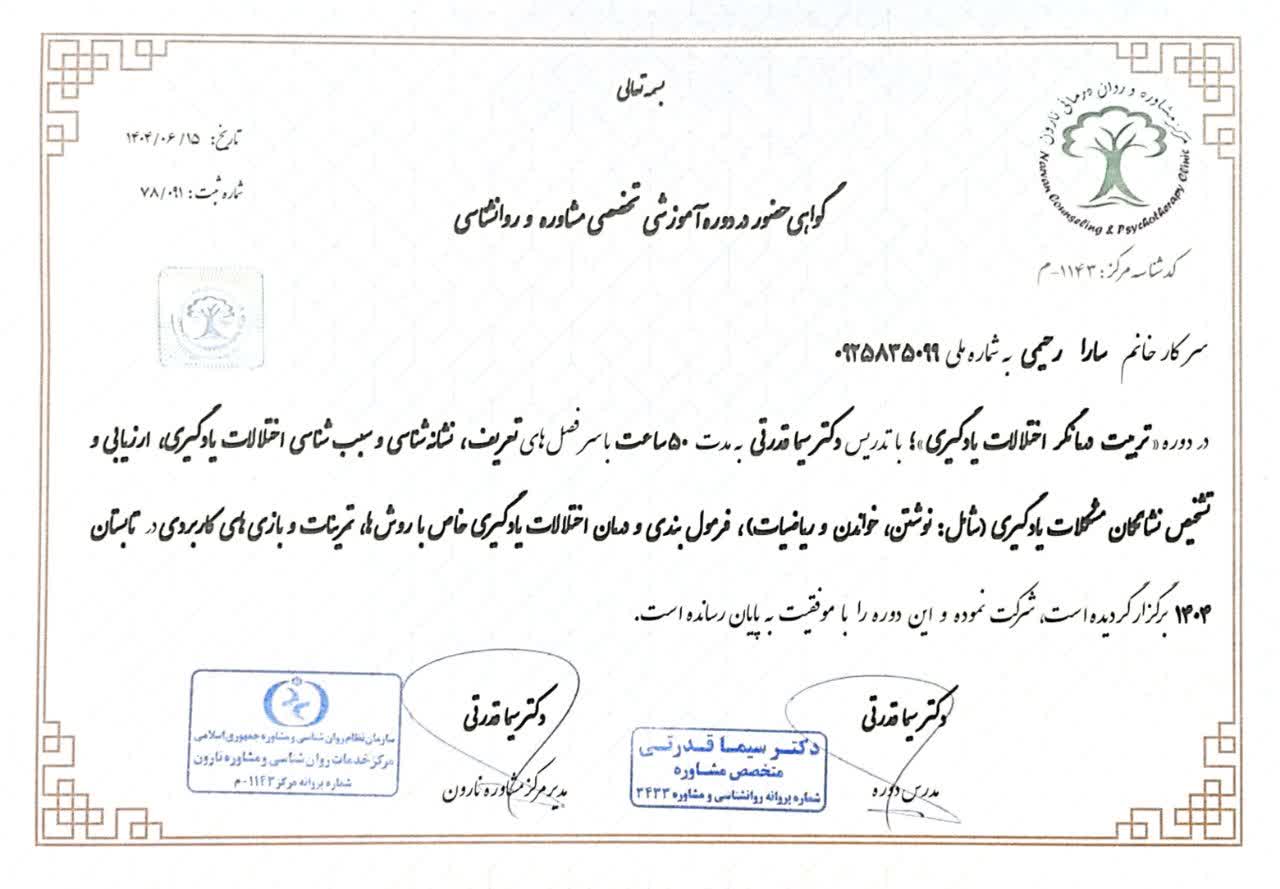 بسمه تعالی
مرکز مشاوره و روان درمانی نارون
Narvan Counseling & Psychotherapy Clinic
کد شناسه مرکز: ۱۱۴۳-م
تاریخ: ۱۴۰۴/۰۶/۱۵
شماره ثبت: ۷۸/۰۹۱
گواهی حضور در دوره آموزشی تخصصی مشاوره و روانشناسی
سرکار خانم سارا رحیمی به شماره ملی ۰۹۲۵۸۳۵۰۹۹
در دوره «تربیت درمانگر اختلالات یادگیری»؛ با تدریس دکتر سیما قدرتی به مدت ۵۰ ساعت با سرفصل های تعریف، نشانه شناسی و سبب شناسی اختلالات یادگیری، ارزیابی و
تشخیص نشانگان مشکلات یادگیری (شامل: نوشتن، خواندن و ریاضیات)، فرمول بندی و درمان اختلالات یادگیری خاص با روش ها، تمرینات و بازی های کاربردی در تابستان
۱۴۰۴ برگزار گردیده است، شرکت نموده و این دوره را با موفقیت به پایان رسانده است.
دکتر سیما قدرتی
مدرس دوره
دکتر سیما قدرتی
متخصص مشاوره
شماره پروانه روانشناسی و مشاوره ۳۴۳۳
دکتر سیما قدرتی
مدیر مرکز مشاوره نارون
سازمان نظام روان شناسی و مشاوره جمهوری اسلامی
مرکز خدمات روان شناسی و مشاوره نارون
شماره پروانه مرکز ۱۱۴۳-م